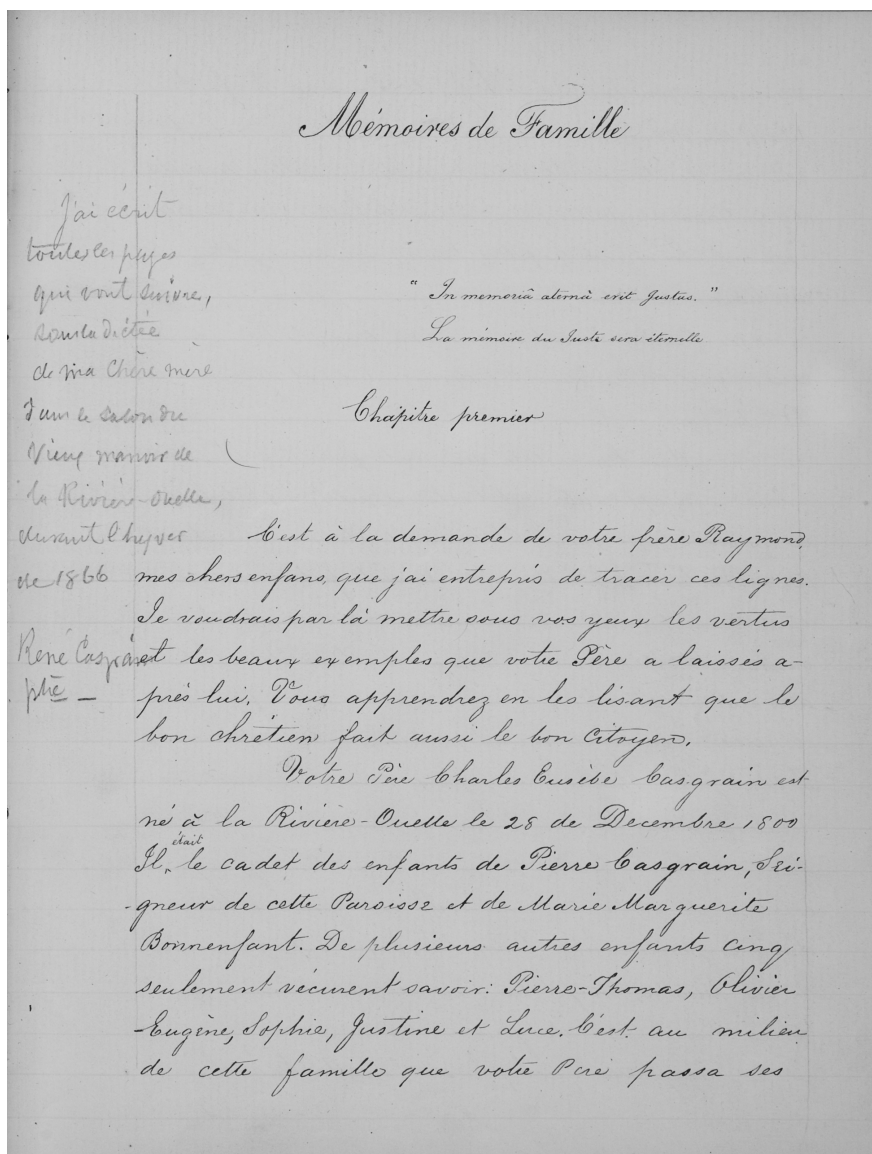 Mémoires de Famille
J'ai écrit
toutes les pages
qui vont suivre,
sous la dictée
de ma chère mère
dans le salon du
vieux manoir de
la Rivière-Ouelle,
durant l'hyver
de 1866
René Casgrain
ptre
" In memoriâ aternâ erit Justus. "
La mémoire du Juste sera éternelle
Chapitre premier
C'est à la demande de votre frère Raymond,
mes chers enfans, que j'ai entrepris de tracer ces lignes.
Je voudrais par là mettre sous vos yeux les vertus
et les beaux exemples que votre Père a laissés a-
près lui. Vous apprendrez en les lisant que le
bon chrétien fait aussi le bon citoyen.
Votre Père Charles Eusèbe Casgrain est
né à la Rivière-Ouelle le 28 de Decembre 1800
Il était le cadet des enfants de Pierre Casgrain, Sei-
-gneur de cette Paroisse et de Marie Marguerite
Bonnenfant. De plusieurs autres enfants cinq
seulement vécurent savoir: Pierre-Thomas, Olivier
Eugène, Sophie, Justine et Luce. C'est au milieu
de cette famille que votre Père passa ses